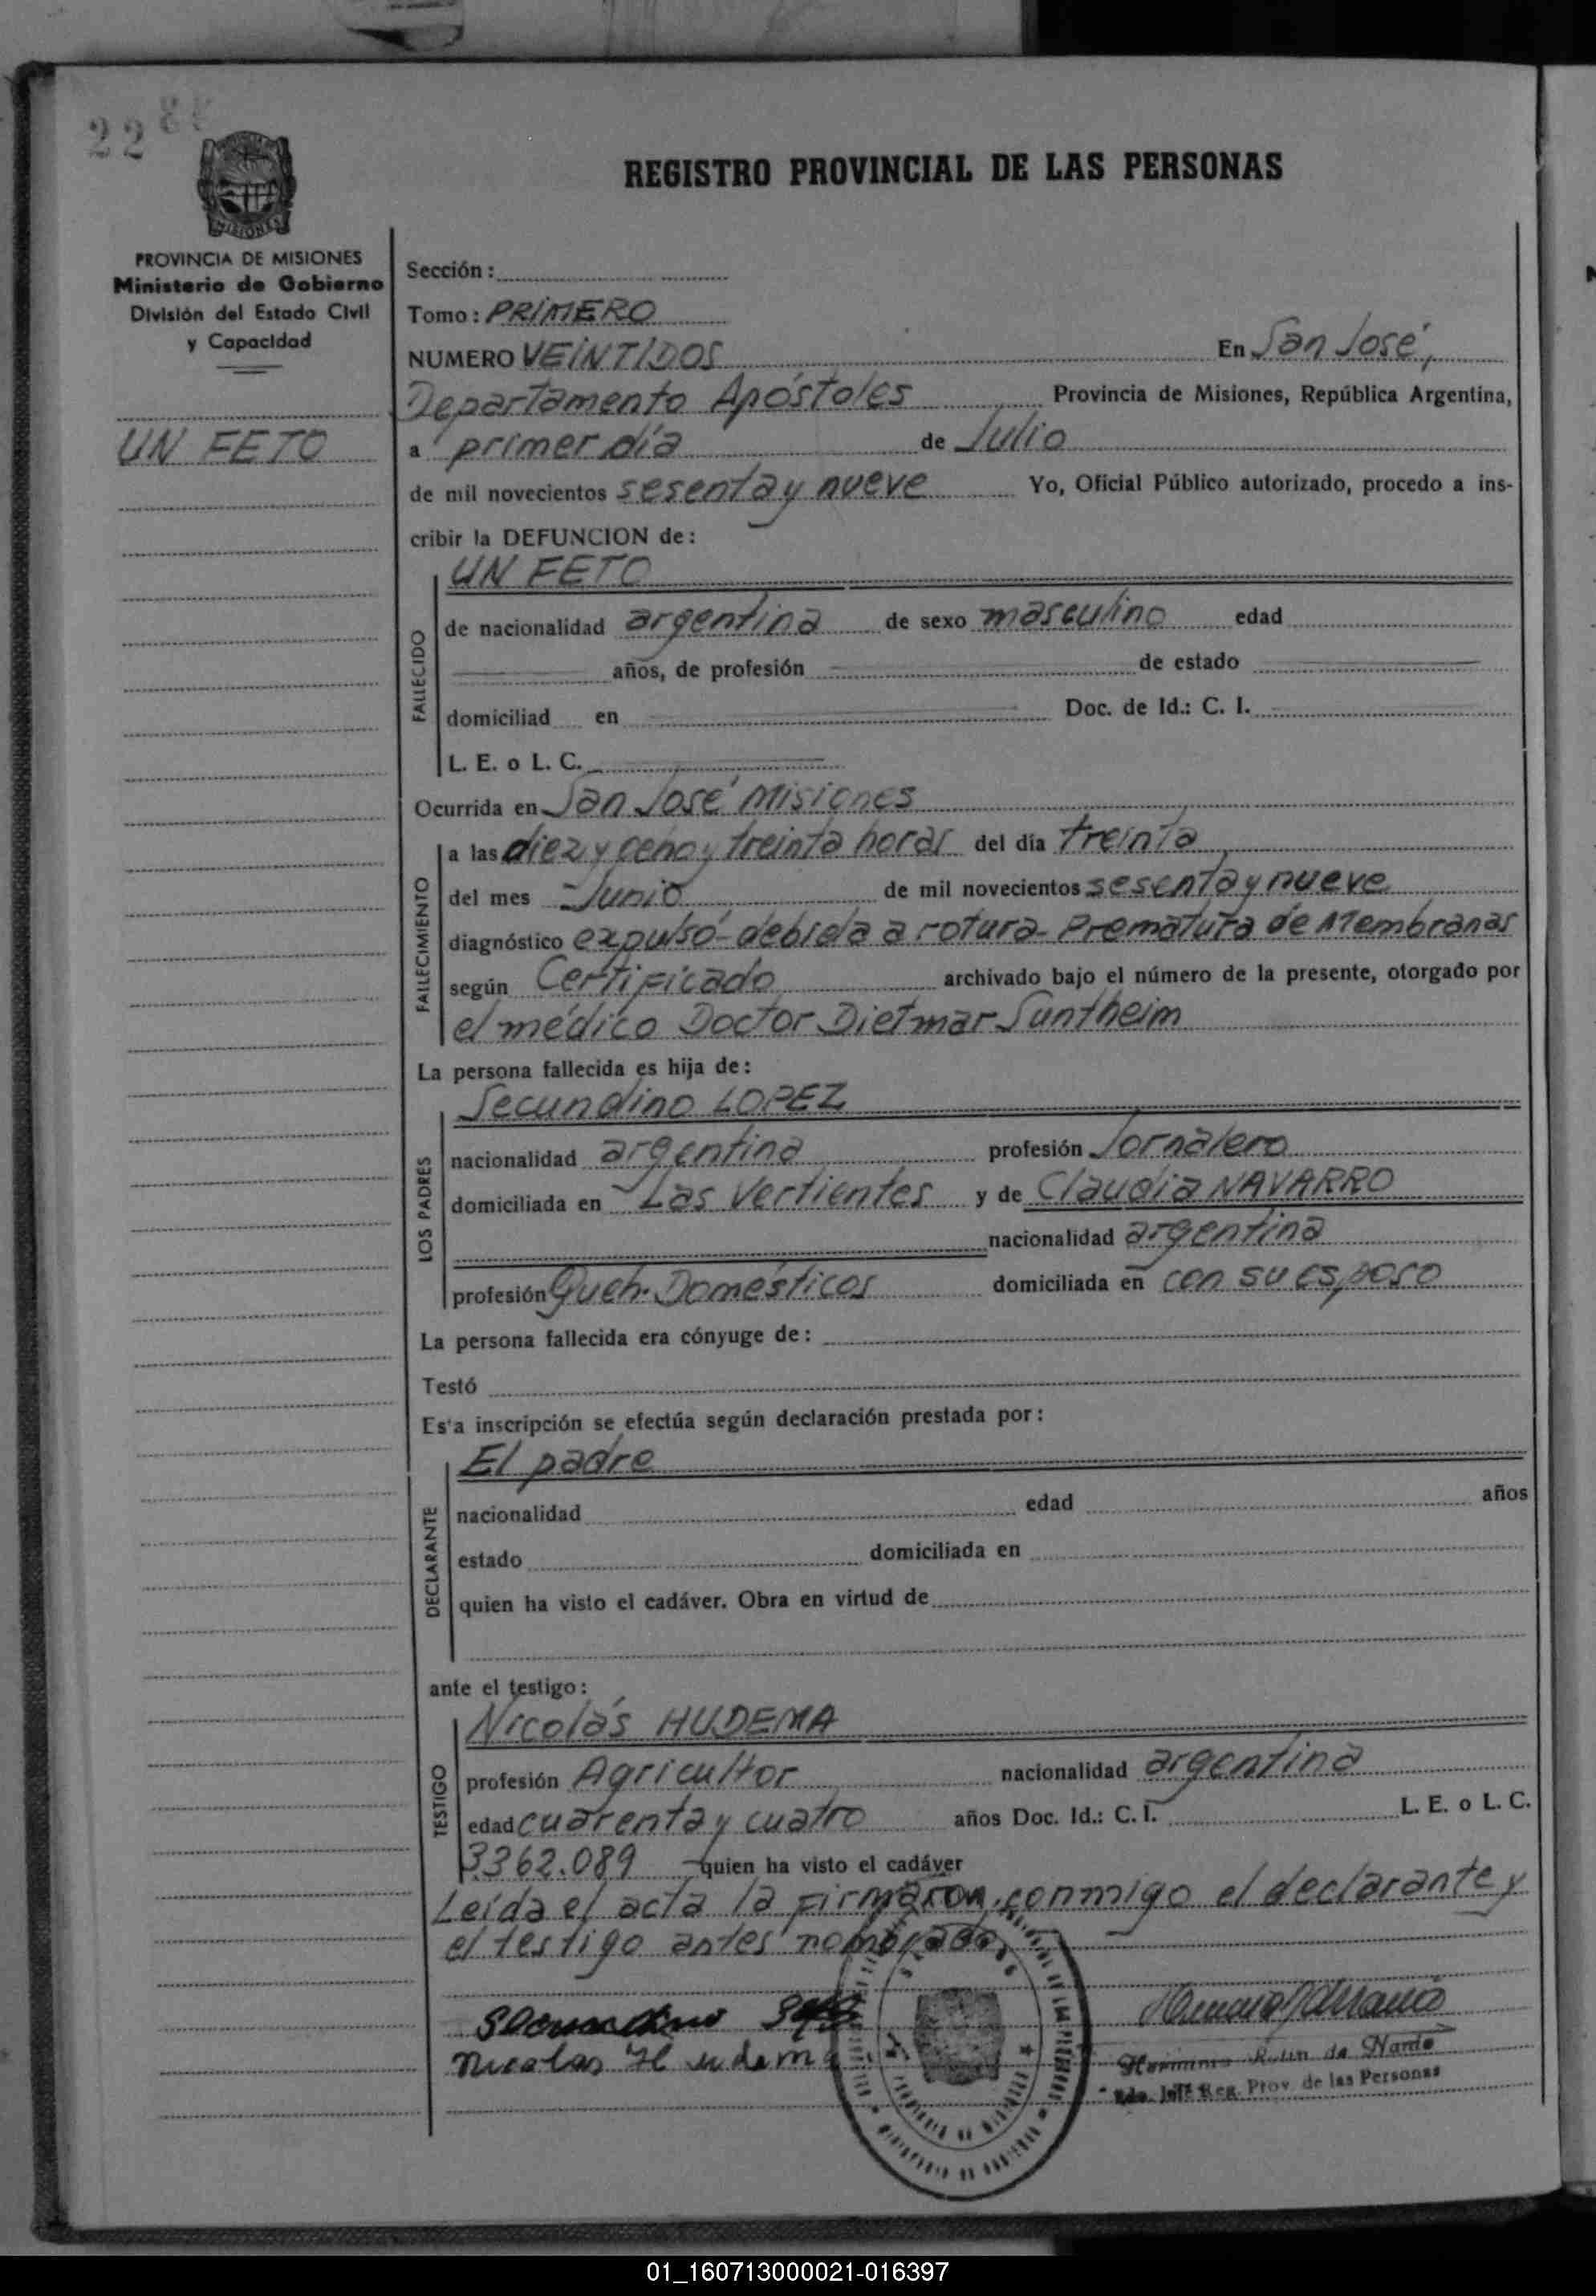 22
REGISTRO PROVINCIAL DE LAS PERSONAS
MISIONES
PROVINCIA DE MISIONES
Ministerio de Gobierno
División del Estado Civil
y Capacidad
UN FETO
Sección:
Tomo: PRIMERO
NUMERO VEINTIDOS En San José,
Departamento Apóstoles Provincia de Misiones, República Argentina,
a primer día de Julio
de mil novecientos sesenta y nueve Yo, Oficial Público autorizado, procedo a ins-
cribir la DEFUNCION de:
FALLECIDO
UN FETO
de nacionalidad argentina de sexo masculino edad
años, de profesión de estado
domiciliad en Doc. de Id.: C. I.
L. E. o L. C.
Ocurrida en San José Misiones
FALLECIMIENTO
a las diez y ocho y treinta horas del día treinta
del mes Junio de mil novecientos sesenta y nueve
diagnóstico expulsó-debida a rotura-Prematura de Membranas
según Certificado archivado bajo el número de la presente, otorgado por
el médico Doctor Dietmar Suntheim
La persona fallecida es hija de:
LOS PADRES
Secundino LOPEZ
nacionalidad argentina profesión Jornalero
domiciliada en Las Vertientes y de Claudia NAVARRO
nacionalidad argentina
profesión Queh. Domésticos domiciliada en con su esposo
La persona fallecida era cónyuge de:
Testó
Es'a inscripción se efectúa según declaración prestada por:
DECLARANTE
El padre
nacionalidad edad años
estado domiciliada en
quien ha visto el cadáver. Obra en virtud de
ante el testigo:
TESTIGO
Nicolás HUDEMA
profesión Agricultor nacionalidad argentina
edad cuarenta y cuatro años Doc. Id.: C. I. L. E. o L. C.
3362.089 quien ha visto el cadáver
Leída el acta la firmaron, conmigo el declarante y
el testigo antes nombrados
Secundino
Nicolas Hudema
de Nardo
Reg. Prov. de las Personas
01_160713000021-016397